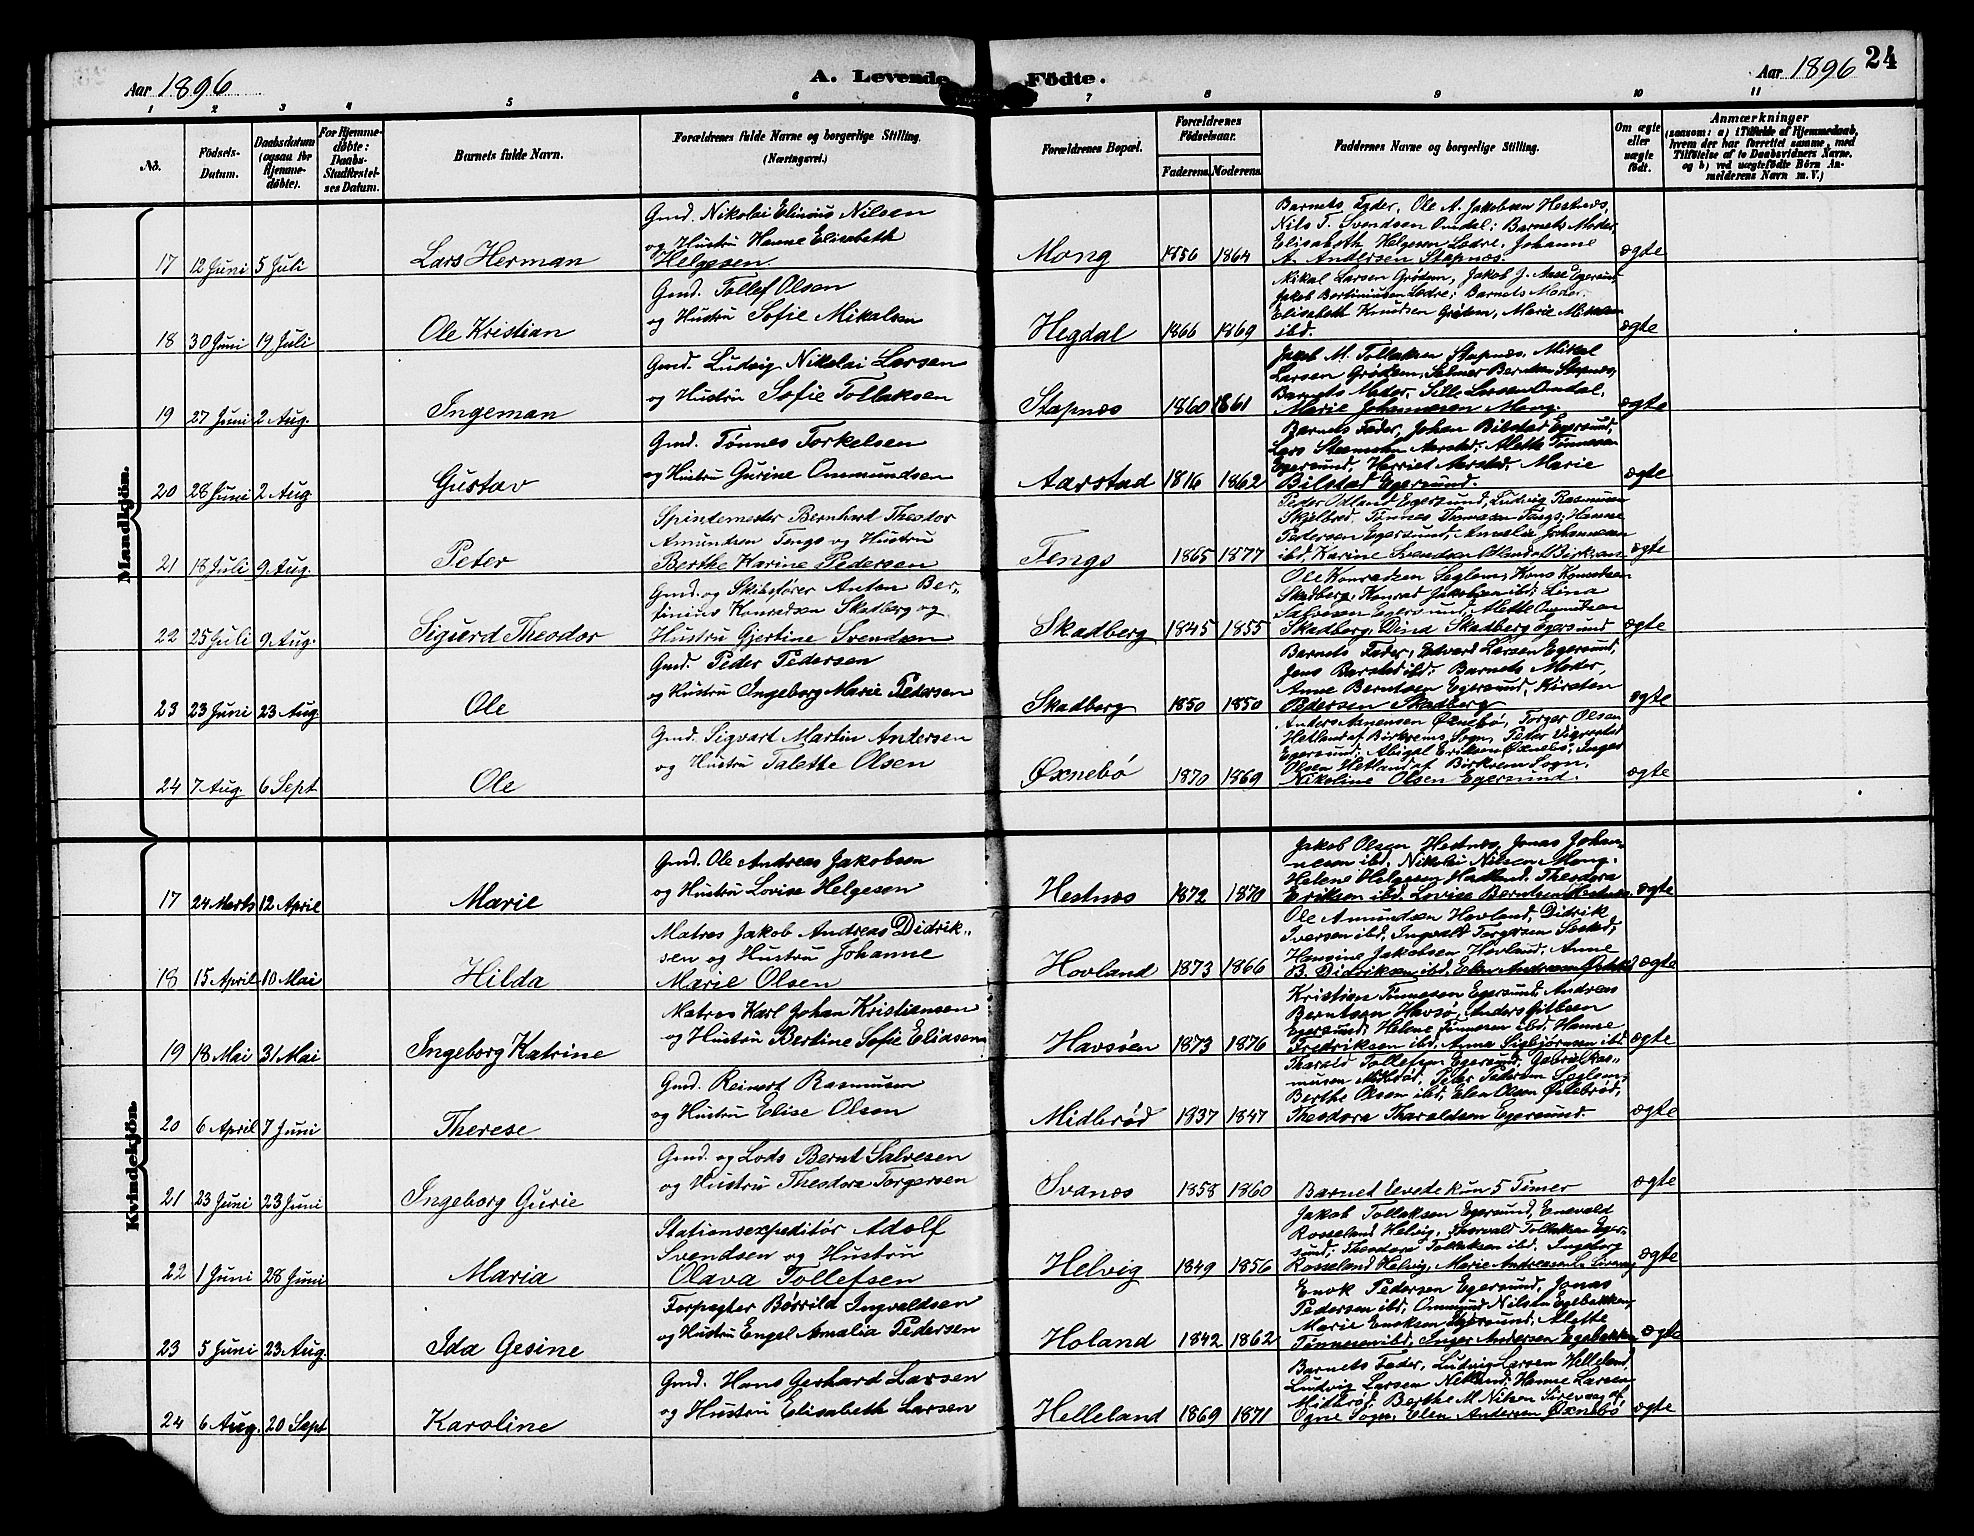 Aar 1896
A. Levende Födte.
Aar 1896
24
1 2 3 4 5 6 7 8 9 10 11
No.
Födsels-Datum.
Daabsdatum (ogsaa for Hjemmedöbte).
For Hjemmedöbte: Daabs-Stadfæstelses Datum.
Barnets fulde Navn.
Forældrenes fulde Navne og borgerlige Stilling. (Næringsvei.)
Forældrenes Bopæl.
Forældrenes Födselsaar.
Faderens. Moderens.
Faddernes Navne og borgerlige Stilling.
Om ægte eller uægte födt.
Anmærkninger
(saasom: a) i Tilfælde af Hjemmedaab, hvem der har forrettet samme, med Tilföielse af to Daabsvidners Navne, og b) ved uægtefödte Börn Anmelderens Navn m. V.)
Mandkjön.
17 12 Juni 5 Juli Lars Herman
Gmd. Nikolai Elinius Nilsen
og Hustru Hanne Elisabeth
Helgesen
Mong 1856 1864
Barnets Fader, Ole A. Jakobsen Hestnes,
Nils T. Svendsen Omdal; Barnets Moder,
Elisabeth Helgesen Lodre, Johanne
A. Andersen Stapnes.
ægte
18 30 Juni 19 Juli Ole Kristian
Gmd. Tollef Olsen
og Hustru Sofie Mikalsen
Hegdal 1866 1869
Mikal Larsen Grødem, Jakob J. Aase Egersund,
Jakob Bertiniusen Lodre; Barnets Moder,
Elisabeth Knudsen Grødem, Marie
ibd.
ægte
19 27 Juni 2 Aug. Ingeman
Gmd. Ludvig Nikolai Larsen
og Hustru Sofie Tollaksen
Stapnæs 1860 1861
Jakob M. Tollaksen Stapnæs, Mikal
Larsen Grødem, Salmer Berntsen Stapnæs,
Barnets Moder, Sille Larsen Omdal,
Marie Johannesen Mong.
ægte
20 28 Juni 2 Aug Gustav
Gmd. Tønnes Torkelsen
og Hustru Gurine Ommundsen
Aarstad 1816 1862
Barnets Fader, Johan Bilstad Egersund,
Lars Aarstad; Alette Tønnesen
Egersund, Harriet Aarstad, Marie
Bilstad Egersund.
ægte
21 18 Juli 9 Aug. Peter
Spindemester Bernhard Theodor
Amundsen Tengs og Hustru
Berthe Karine Pedersen
Tengs 1865 1877
Peder Odland Egersund, Ludvig Rasmusen
Skjelbred, Tønnes Thomasen Tengs; Hanne
Pedersen Egersund, Amalia Johannesen
ibd, Karine Svendsen
ægte
22 25 Juli 9 Aug. Sigurd Theodor
Gmd. og Skibsfører Anton Ber-
tinius Konradsen Skadberg og
Hustru Gjertine Svendsen
Skadberg 1845 1855
Ole Konradsen Seglem, Hans Konradsen
Skadberg, Konrad Jakobsen ibd; Lina
Salvesen Egersund, Alette Osmundsen
Skadberg, Dina Skadberg Egersund
ægte
23 23 Juni 23 Aug Ole
Gmd. Peder Pedersen
og Hustru Ingeborg Marie Pedersen
Skadberg 1850 1850
Barnets Fader, Edvard Larsen Egersund,
Jens Barstad ibd; Barnets Moder,
Anne Berntsen Egersund, Kirsten
Pedersen Skadberg
ægte
24 7 Aug. 6 Sept Ole
Gmd. Sigvart Martin Andersen
og Hustru Talette Olsen
Øxnebø 1870 1869
Anders Øxnebø, Torger Olsen
Hetland af Birkrems Sogn, Peter Vigrestad
Egersund; Abigal Eriksen Øxnebø, Inger
Olsen Hetland af Birkrem Sogn,
Nikoline Olsen Egersund.
ægte
Kvindekjön.
17 24 Marts 12 April Marie
Gmd. Ole Andreas Jakobsen
og Hustru Lovise Helgesen
Hestnæs 1872 1870
Jakob Olsen Hestnæs, Jonas Johan-
nesen ibd, Nikolai Nilsen Mong.
Helene Helgesen Hadland, Theodora
Eriksen ibd, Lovise Berntsen Hestnæs
ægte
18 15 April 10 Mai Hilda
Matros Jakob Andreas Didrik-
sen og Hustru Johanne
Marie Olsen
Hovland 1873 1866
Ole Amundsen Hovland, Didrik
Iversen ibd, Ingvald Torgersen
Hansine Jakobsen Hovland, Anne
B. Didriksen ibd, Elen Andersen
ægte
19 18 Mai 31 Mai Ingeborg Katrine
Matros Karl Johan Kristiansen
og Hustru Bertine Sofie Eliasen
Havsøen 1873 1876
Kristian Tønnesen Egersund, Andreas
Berntsen Havsø, Anders Gitlesen
Egersund; Helene Tønnesen ibd, Hanne
Fredriksen ibd, Anna Sigbjørnsen ibd
ægte
20 6 April 7 Juni Therese
Gmd. Reinert Rasmusen
og Hustru Elise Olsen
Midbrød 1837 1847
Tharald Tollefsen Egersund, Gabriel Ras-
musen Midbrød, Peter Pedersen Seglem;
Berthe Olsen ibd, Elen Olsen Øxlebrød,
Theodora Tharaldsen Egersund
ægte
21 23 Juni 23 Juni Ingeborg Gurie
Gmd. og Lods Bernt Salvesen
og Hustru Theodora Torgersen
Svanæs 1858 1860
Barnet levede kun 5 Timer
ægte
22 1 Juni 28 Juni Maria
Stationsexpeditør Adolf
Svendsen og Hustru
Olava Tollefsen
Helvig 1849 1856
Jakob Tollaksen Egersund, Enevald
Rosseland Helvig, Thorvald Tollaksen Eger-
sund; Theodora Tollaksen ibd, Ingeborg
Rosseland Helvig, Marie Andreasen
ægte
23 5 Juni 23 Aug. Ida Gesine
Forpagter Børrild Ingvaldsen
og Hustru Engel Amalia Pedersen
Holand 1842 1862
Enok Pedersen Egersund, Jonas
Pedersen ibd, Ommund Nilsen Egebakken,
Marie Enoksen Egersund, Alette
Tønnesen ibd, Inger Andersen Egebakken
ægte
24 6 Aug. 20 Sept Karoline
Gmd. Hans Gerhard Larsen
og Hustru Elisabeth Larsen
Helleland 1869 1871
Barnets Fader, Ludvig Larsen Helleland,
Ludvig Larsen; Hanne Larsen
Midbrød, Berthe M Nilsen Sirevaag af
Ogne Sogn, Elen Andersen Øxnebø
ægte